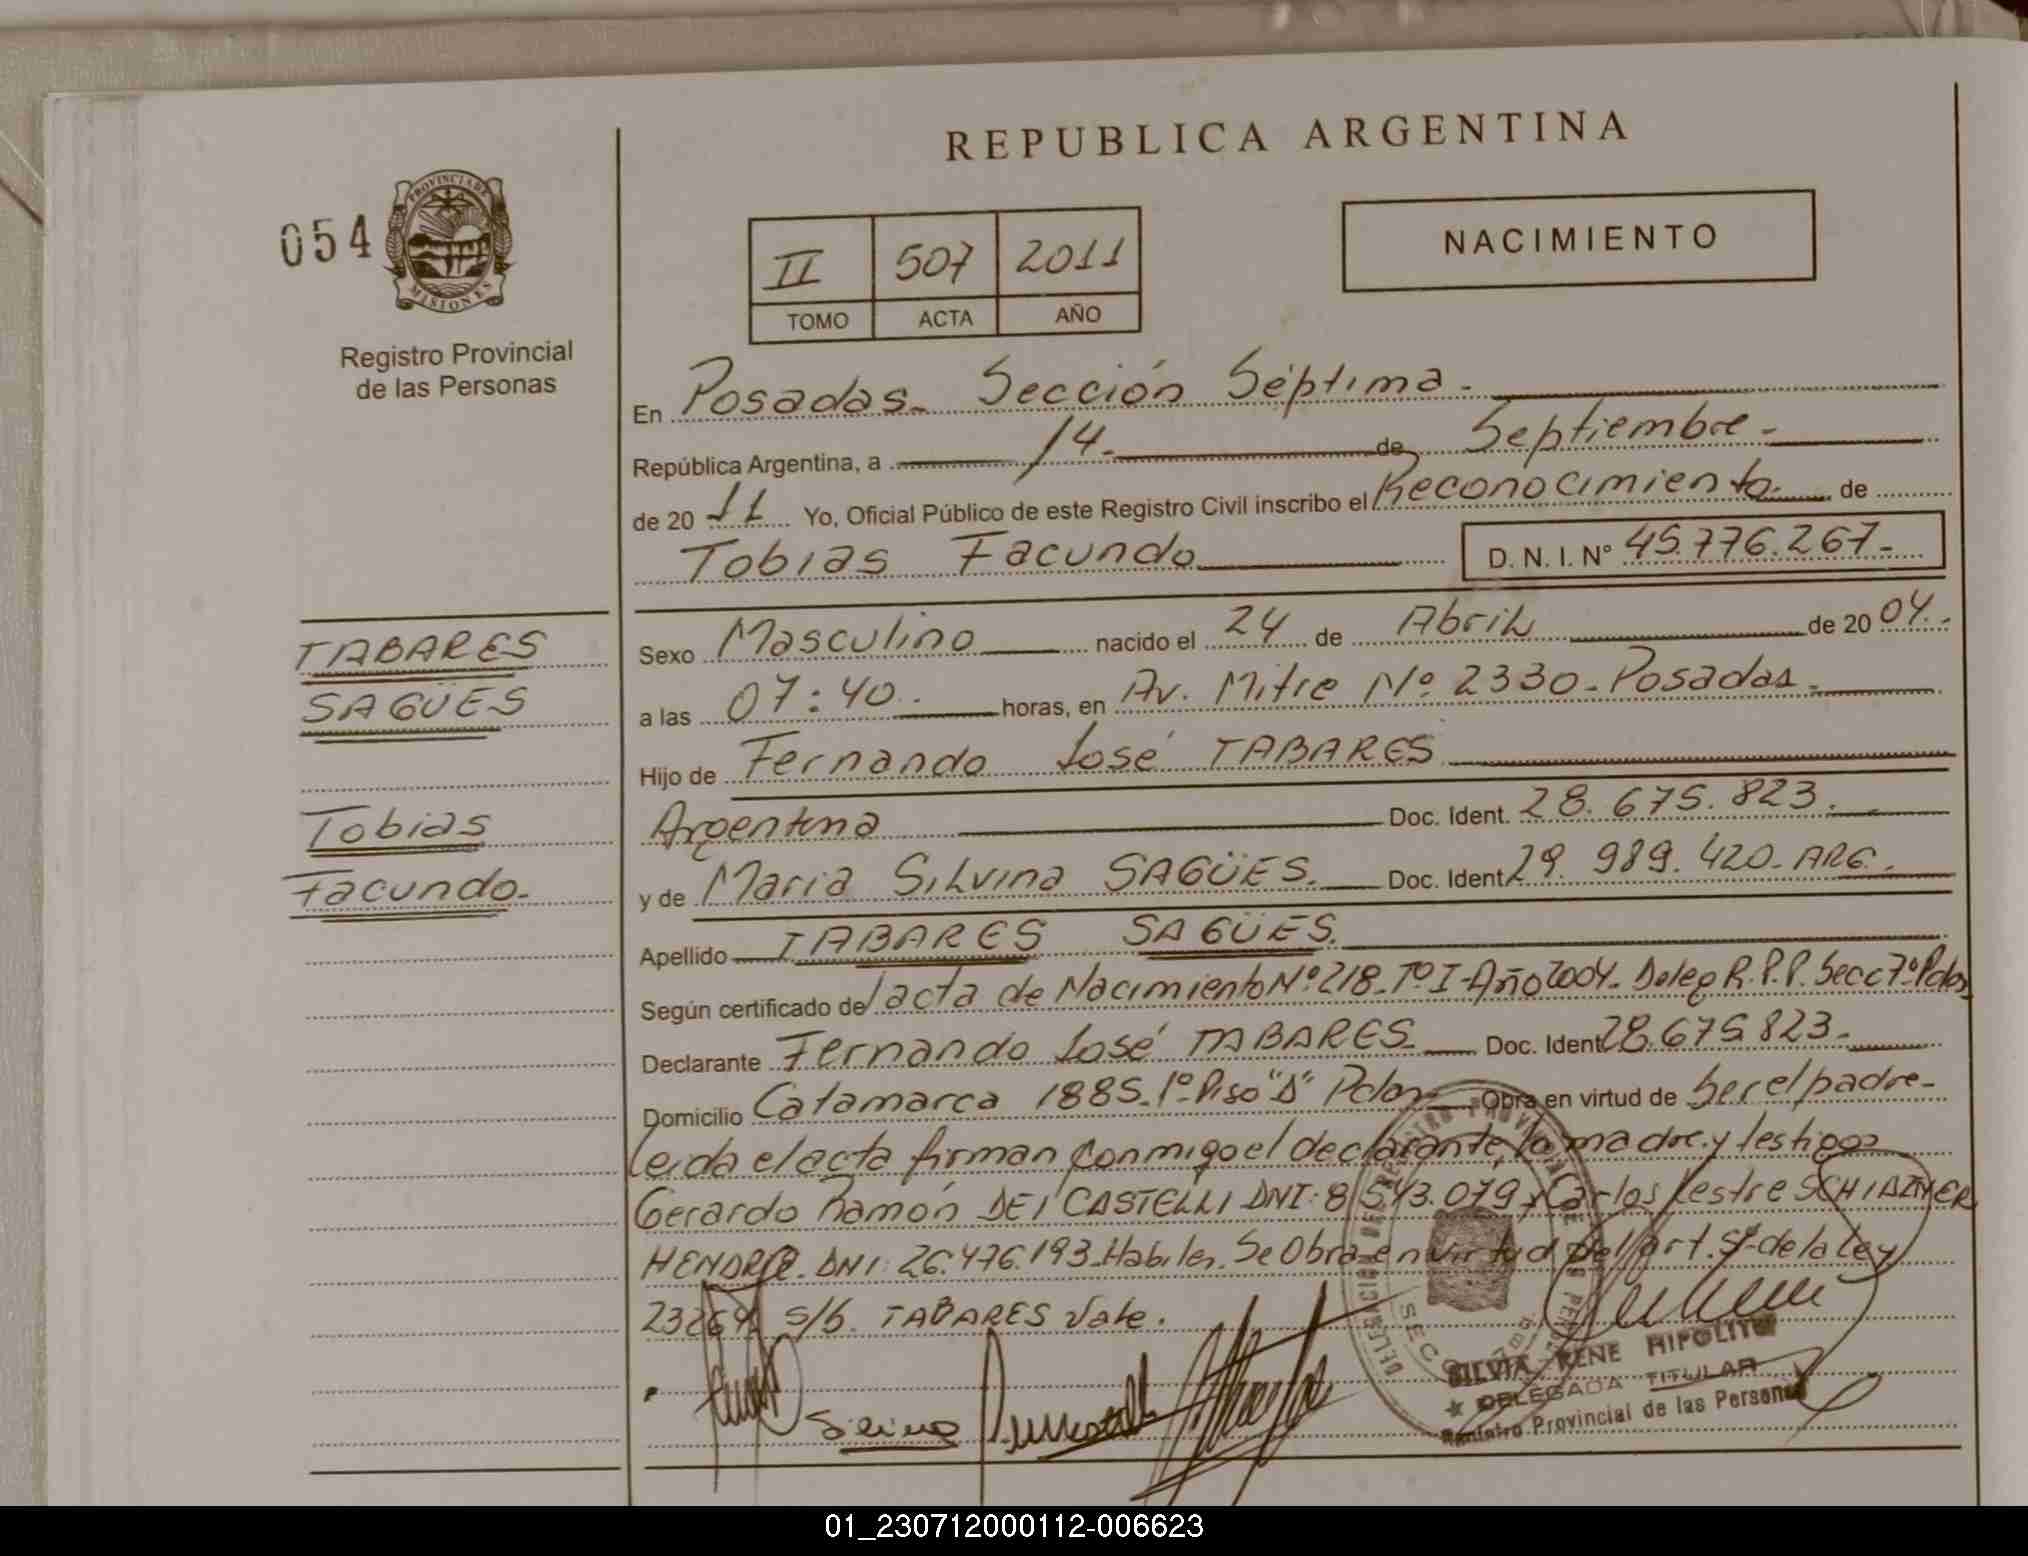 REPUBLICA ARGENTINA
054
PROVINCIA DE
MISIONES
Registro Provincial
de las Personas
II 507 2011
TOMO ACTA AÑO
NACIMIENTO
En Posadas. Sección Séptima.
República Argentina, a 14. de Septiembre.
de 20 11 Yo, Oficial Público de este Registro Civil inscribo el Reconocimiento de
Tobias Facundo D. N. I. Nº 45.776.267.
TABARES
SAGÜES
Tobias
Facundo.
Sexo Masculino nacido el 24 de Abril de 20 04.
a las 07:40. horas, en Av. Mitre Nº 2330. Posadas.
Hijo de Fernando José TABARES
Argentina Doc. Ident. 28.675.823.
y de Maria Silvina SAGÜES. Doc. Ident 29.989.420. ARG.
Apellido TABARES SAGÜES.
Según certificado de acta de Nacimiento Nº 218. Tº I. Año 2004. Deleg R.P.P. Secc 7º Pdas.
Declarante Fernando José TABARES Doc. Ident 28.675.823.
Domicilio Catamarca 1885. 1º Piso "D" Pdas Obra en virtud de Ser el padre.
Leida el acta firman conmigo el declarante, la madre y testigos
Gerardo Ramón DEI CASTELLI DNI: 8.543.079 y Carlos
DNI: 26.476.193. Habiles. Se Obra en virtud del art. de la Ley
s/b. TABARES Vale.
Silvina
SILVIA RENE HIPOLITO
DELEGADA TITULAR
Registro Provincial de las Personas
01_230712000112-006623